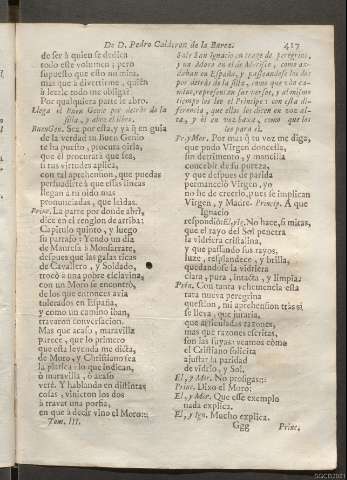 De D. Pedro Calderon de la Barca. 417
de ser à quien se dedicò
todo este volumen; pero
supuesto que esto no mira,
mas que à divertirme, quièn
à leerle todo me obliga?
Por qualquiera parte le abro.
Llega el Buen Genio por detràs de la
silla, y abre el libro.
BuenGen. Sea por esta, y ya q̃ en guia
de la verdad tu Buen Genio
te ha puesto, procura oirla,
que èl procurarà que sea,
si tus virtudes aplica,
con tal aprehension, que puedas
persuadirte à que estas lineas
llegan à tu oido mas
pronunciadas, que leidas.
Princ. La parte por donde abrì,
dice en el renglon de arriba:
Capitulo quinto, y luego
su parrafo: Yendo un dia
de Manresa à Monsarrate,
despues que las galas ricas
de Cavallero, y Soldado,
trocò à una pobre esclavina,
con un Moro se encontrò,
de los que entonces avia
tolerados en España,
y como un camino iban,
travaron conversacion.
Mas què acaso, maravilla
parece, que lo primero
que esta leyenda me dicta,
de Moro, y Christiano sea
la platica: lo que indican,
ò maravilla, ò acaso
verè. Y hablando en distintas
cosas, vinieron los dos
à travar una porfia,
en que à decir vino el Moro:::
Tom. III.
Sale San Ignacio en trage de peregrino,
y un Moro en el de Morisco, como an-
daban en España, y passeandose los dos
por detràs de la silla, como que vàn ca-
minando, representan sus versos, y al mismo
tiempo los lee el Principe: con esta di-
ferencia, que ellos los dicen en voz al-
ta, y èl en voz baxa, como que los
lee para sì.
Pr. y Mor. Por mas q̃ tu voz me diga,
que pudo Virgen doncella,
sin detrimento, y mancilla
concebir de su pureza,
y que despues de parida
permaneciò Virgen, yo
no he de creerlo, pues se implican
Virgen, y Madre. Princip. A que
Ignacio
respondiò: El, y Ig. No hace, si miras,
que el rayo del Sol penetra
la vidriera cristalina,
y que passando sus rayos,
luze, resplandece, y brilla,
quedandose la vidriera
clara, pura, intacta, y limpia.
Prin. Con tanta vehemencia esta
rata nueva peregrina
question, mi aprehension tràs sì
se lleva, que juraria,
que articuladas razones,
mas què razones escritas,
son las suyas: veamos còmo
el Christiano solicita
ajustar la paridad
de vidrio, y Sol.
El, y Mor. No prosigas::
Princ. Dixo el Moro:
El, y Mor. Que esse exemplo
nada explica.
El, y Ign. Mucho explica.
Ggg Princ.